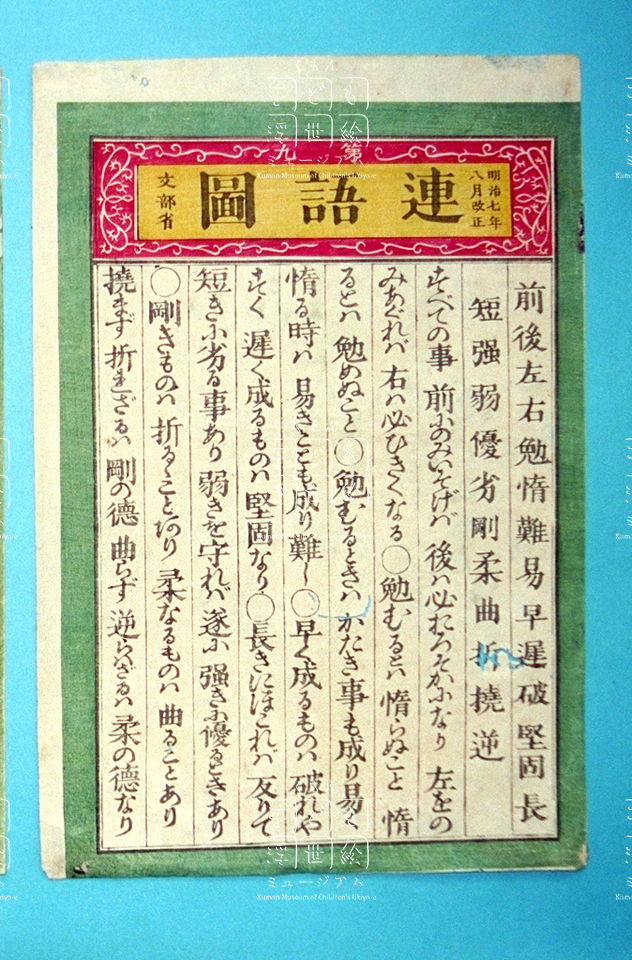 第九
明治七年
八月改正
連語圖
文部省
前後左右勉惰難易早遲破堅固長
短强弱優劣剛柔曲折撓逆
すべての事 前にのみいそげバ 後ハ必おろそかになり 左をの
みあぐれバ 右ハ必ひきくなる○勉むるとハ 惰らぬこと 惰
るとハ 勉めぬこと○勉むるときハ かたき事も成り易く
惰る時ハ 易きことも成り難し○早く成るものハ 破れや
すく 遲く成るものハ 堅固なり○長きにほこれハ 反りて
短きに劣る事あり 弱きを守れバ 遂に强きに優るときあり
○剛きものハ 折るゝことあり 柔なるものハ 曲ることあり
撓まず 折れざるハ 剛の徳 曲らず 逆らハざるハ 柔の徳なり
くもん
こども
浮世絵
ミュージアム
Kumon Museum of Children's Ukiyo-e
浮世絵
ミュージアム
Kumon Museum of Children's Ukiyo-e